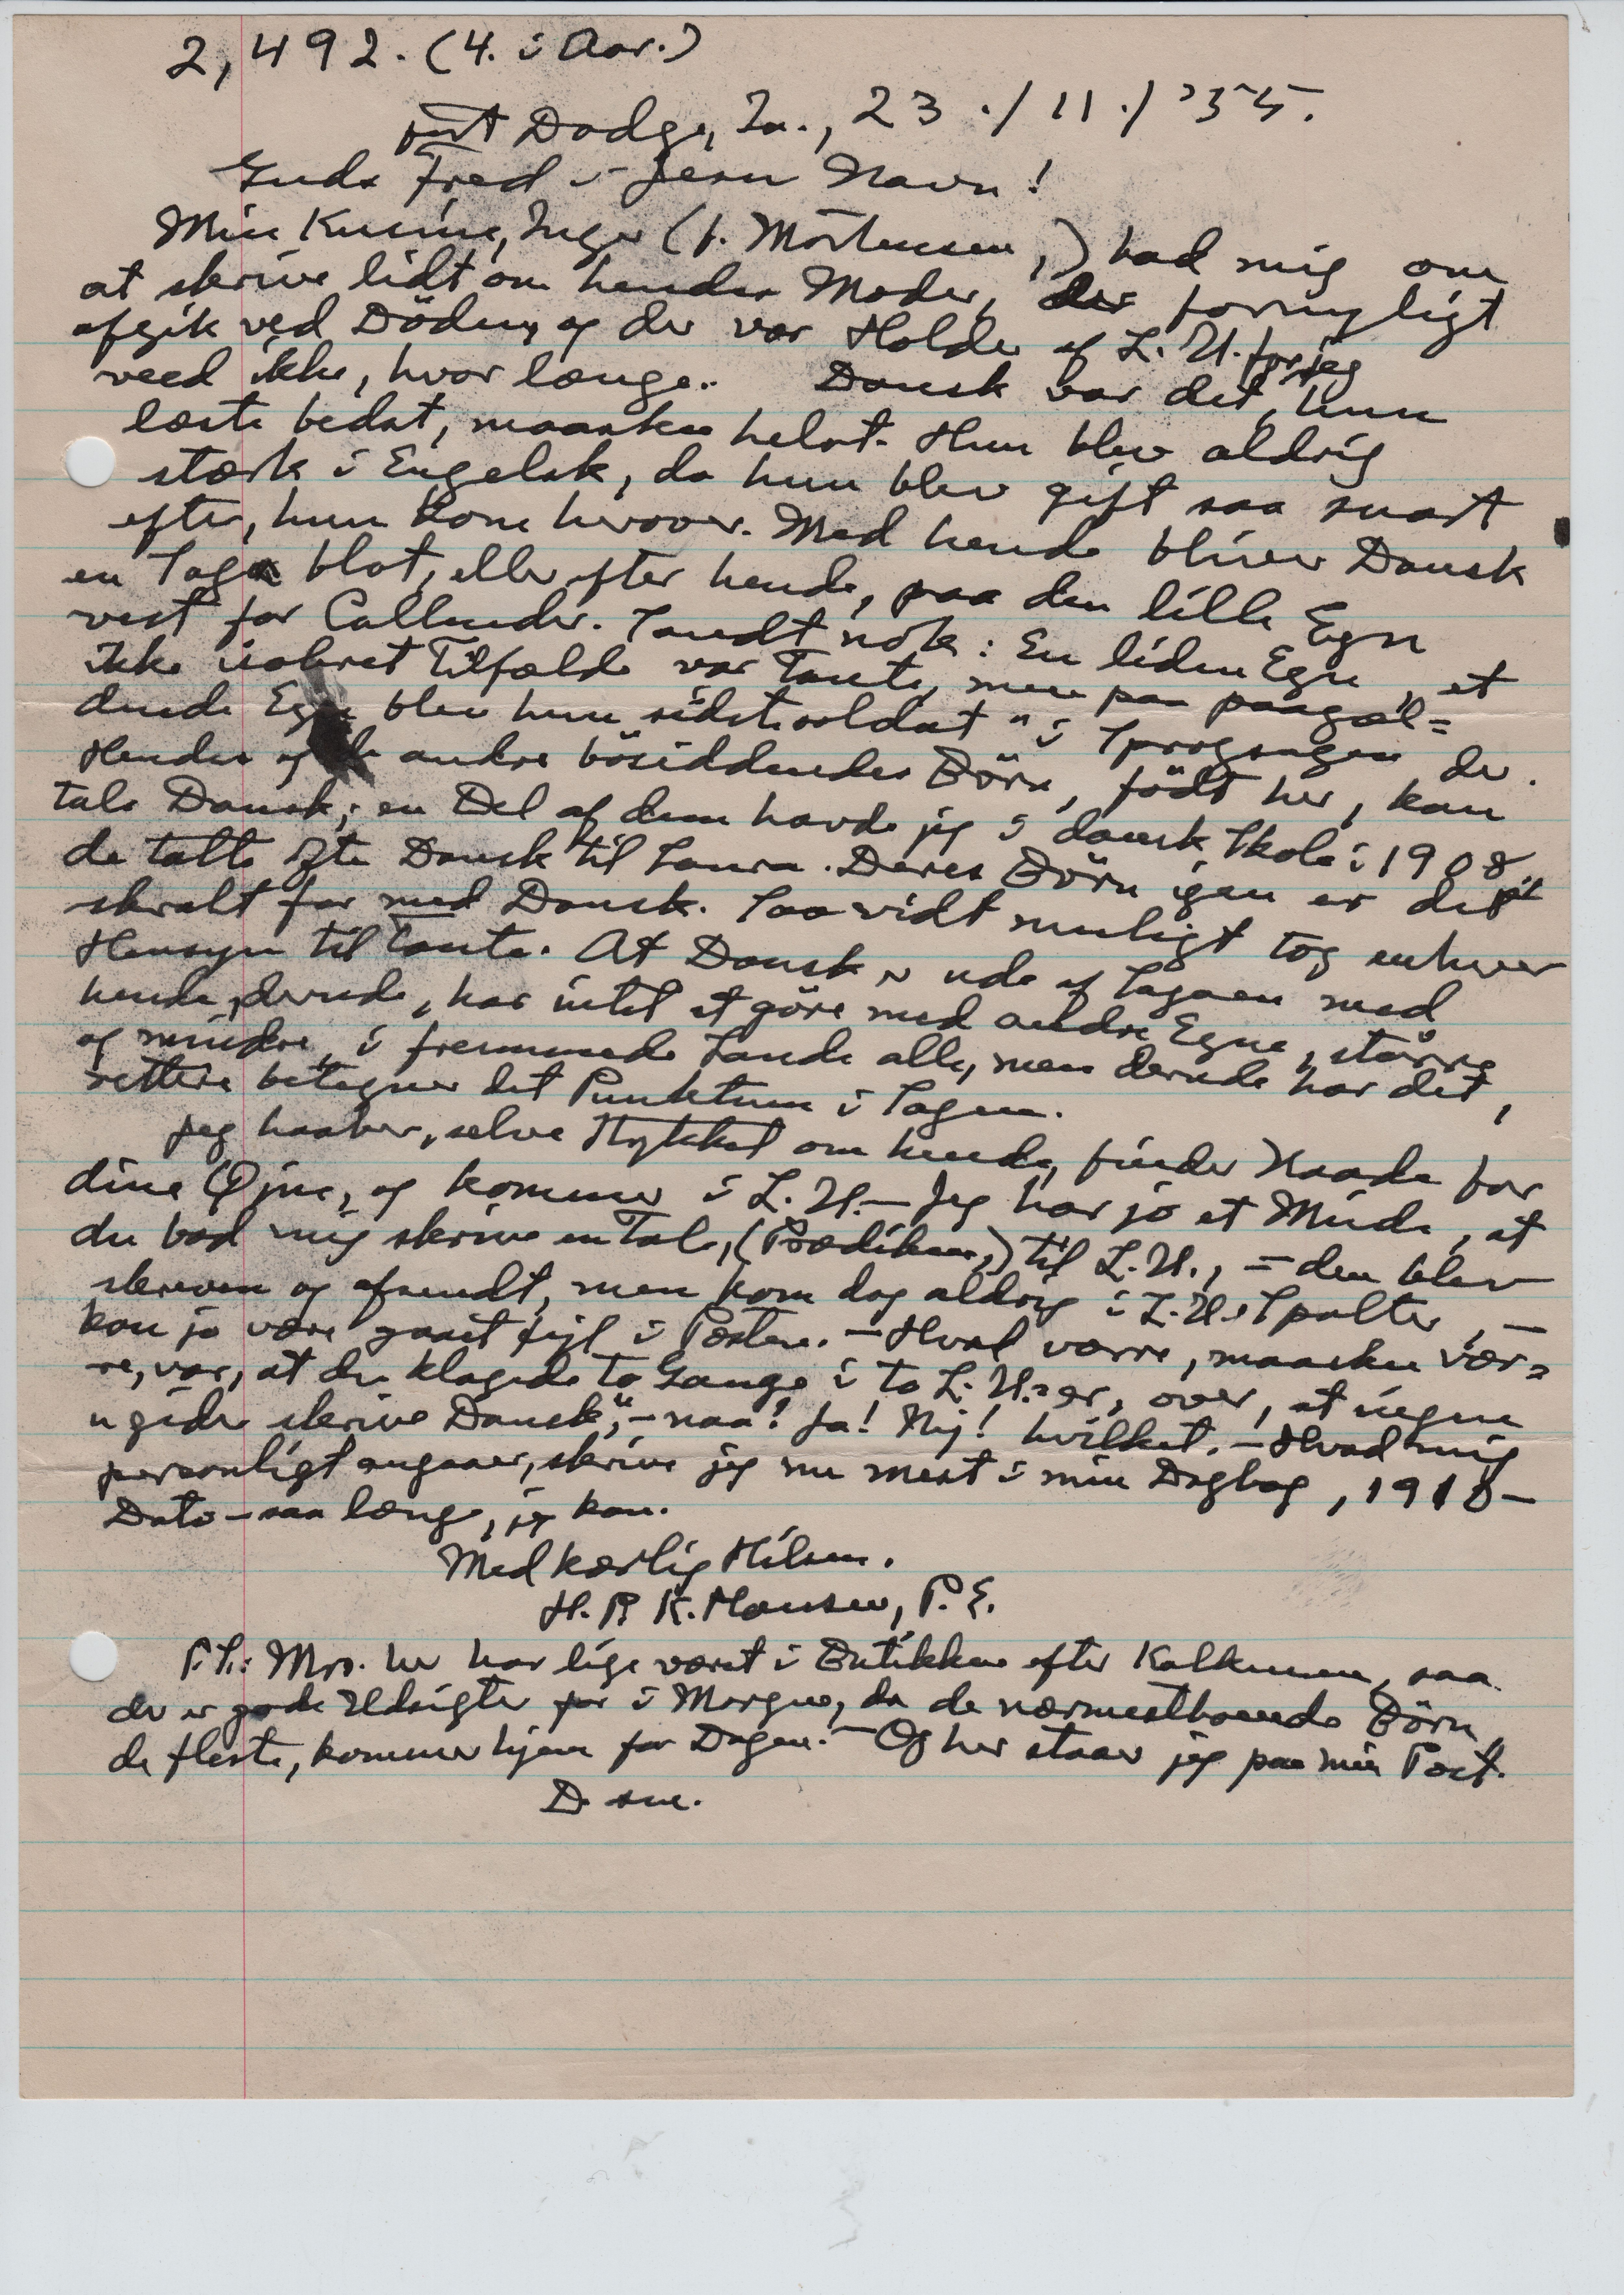 2,492. (4. i Aar.)
Fort Dodge, Ia., 23./11./'55.
Guds Fred i Jesu Navn!
Min Kusine, Inger (f. Mortensen,) bad mig om
at skrive lidt om hendes Moder, der fornyligt
afgik ved Döden, og der var Holder af L. U. for jeg
veed ikke, hvor længe. Dansk var det, hun
læste bedst, maaske helst. Hun blev aldrig
stærk i Engelsk, da hun blev gift saa snart
efter, hun kom herover. Med hende bliver Dansk
en Saga blot, eller efter hende, paa den lille Egn
vest for Callender. Sandt nok: En liden Egn, et
ikke isoleret Tilfælde var Tante, men paa paagæl=
dende Egn blev hun "sidste soldat" i Sprogsagen der.
Hendes og de andre bosiddendes Börn, födt her, kan
tale Dansk; en Del af dem havde jeg i dansk Skole i 1908,
de talte ofte Dansk til Laura. Deres Börn igen er det
skralt for med Dansk. Saavidt muligt tog enhver
Hensyn til Tante. At Dansk er ude af Sagaen med
hende, derude, har intet at göre med andre Egne, större
og mindre, i fremmede Lande alle, men derude har det,
rettere betegner det Punktum i Sagen.
Jeg haaber, selve Stykket om hende, finder Naade for
dine Öjne, og kommer i L. U. — Jeg har jo et Minde, at
du bad mig skrive en Tale, (Prædiken,) til L. U., — den blev
skreven og afsendt, men kom dog aldrig i L. U.s Spalter, —
kan jo være gaaet fejl i Posten. — Hvad værre, maaske vær=
re, var, at du klagede to Gange i to L. U.=er, over, at ingen
"gider skrive Dansk", — naa! Ja! Nej! hvilket. — Hvad mig
personligt angaaer, skriver jeg nu mest i min Dagbog, 1918 —
Dato — saa længe, jeg kan.
Med kærlig Hilsen.
H. P. K. Hansen, P. E.
P. S.: Mrs. her har lige været i Butikken efter Kalkunen, saa
der er gode Udsigter for i Morgen, da de nærmestboende Börn,
de fleste, kommer hjem for Dagen. — Og her staar jeg paa min Post.
D. sm.